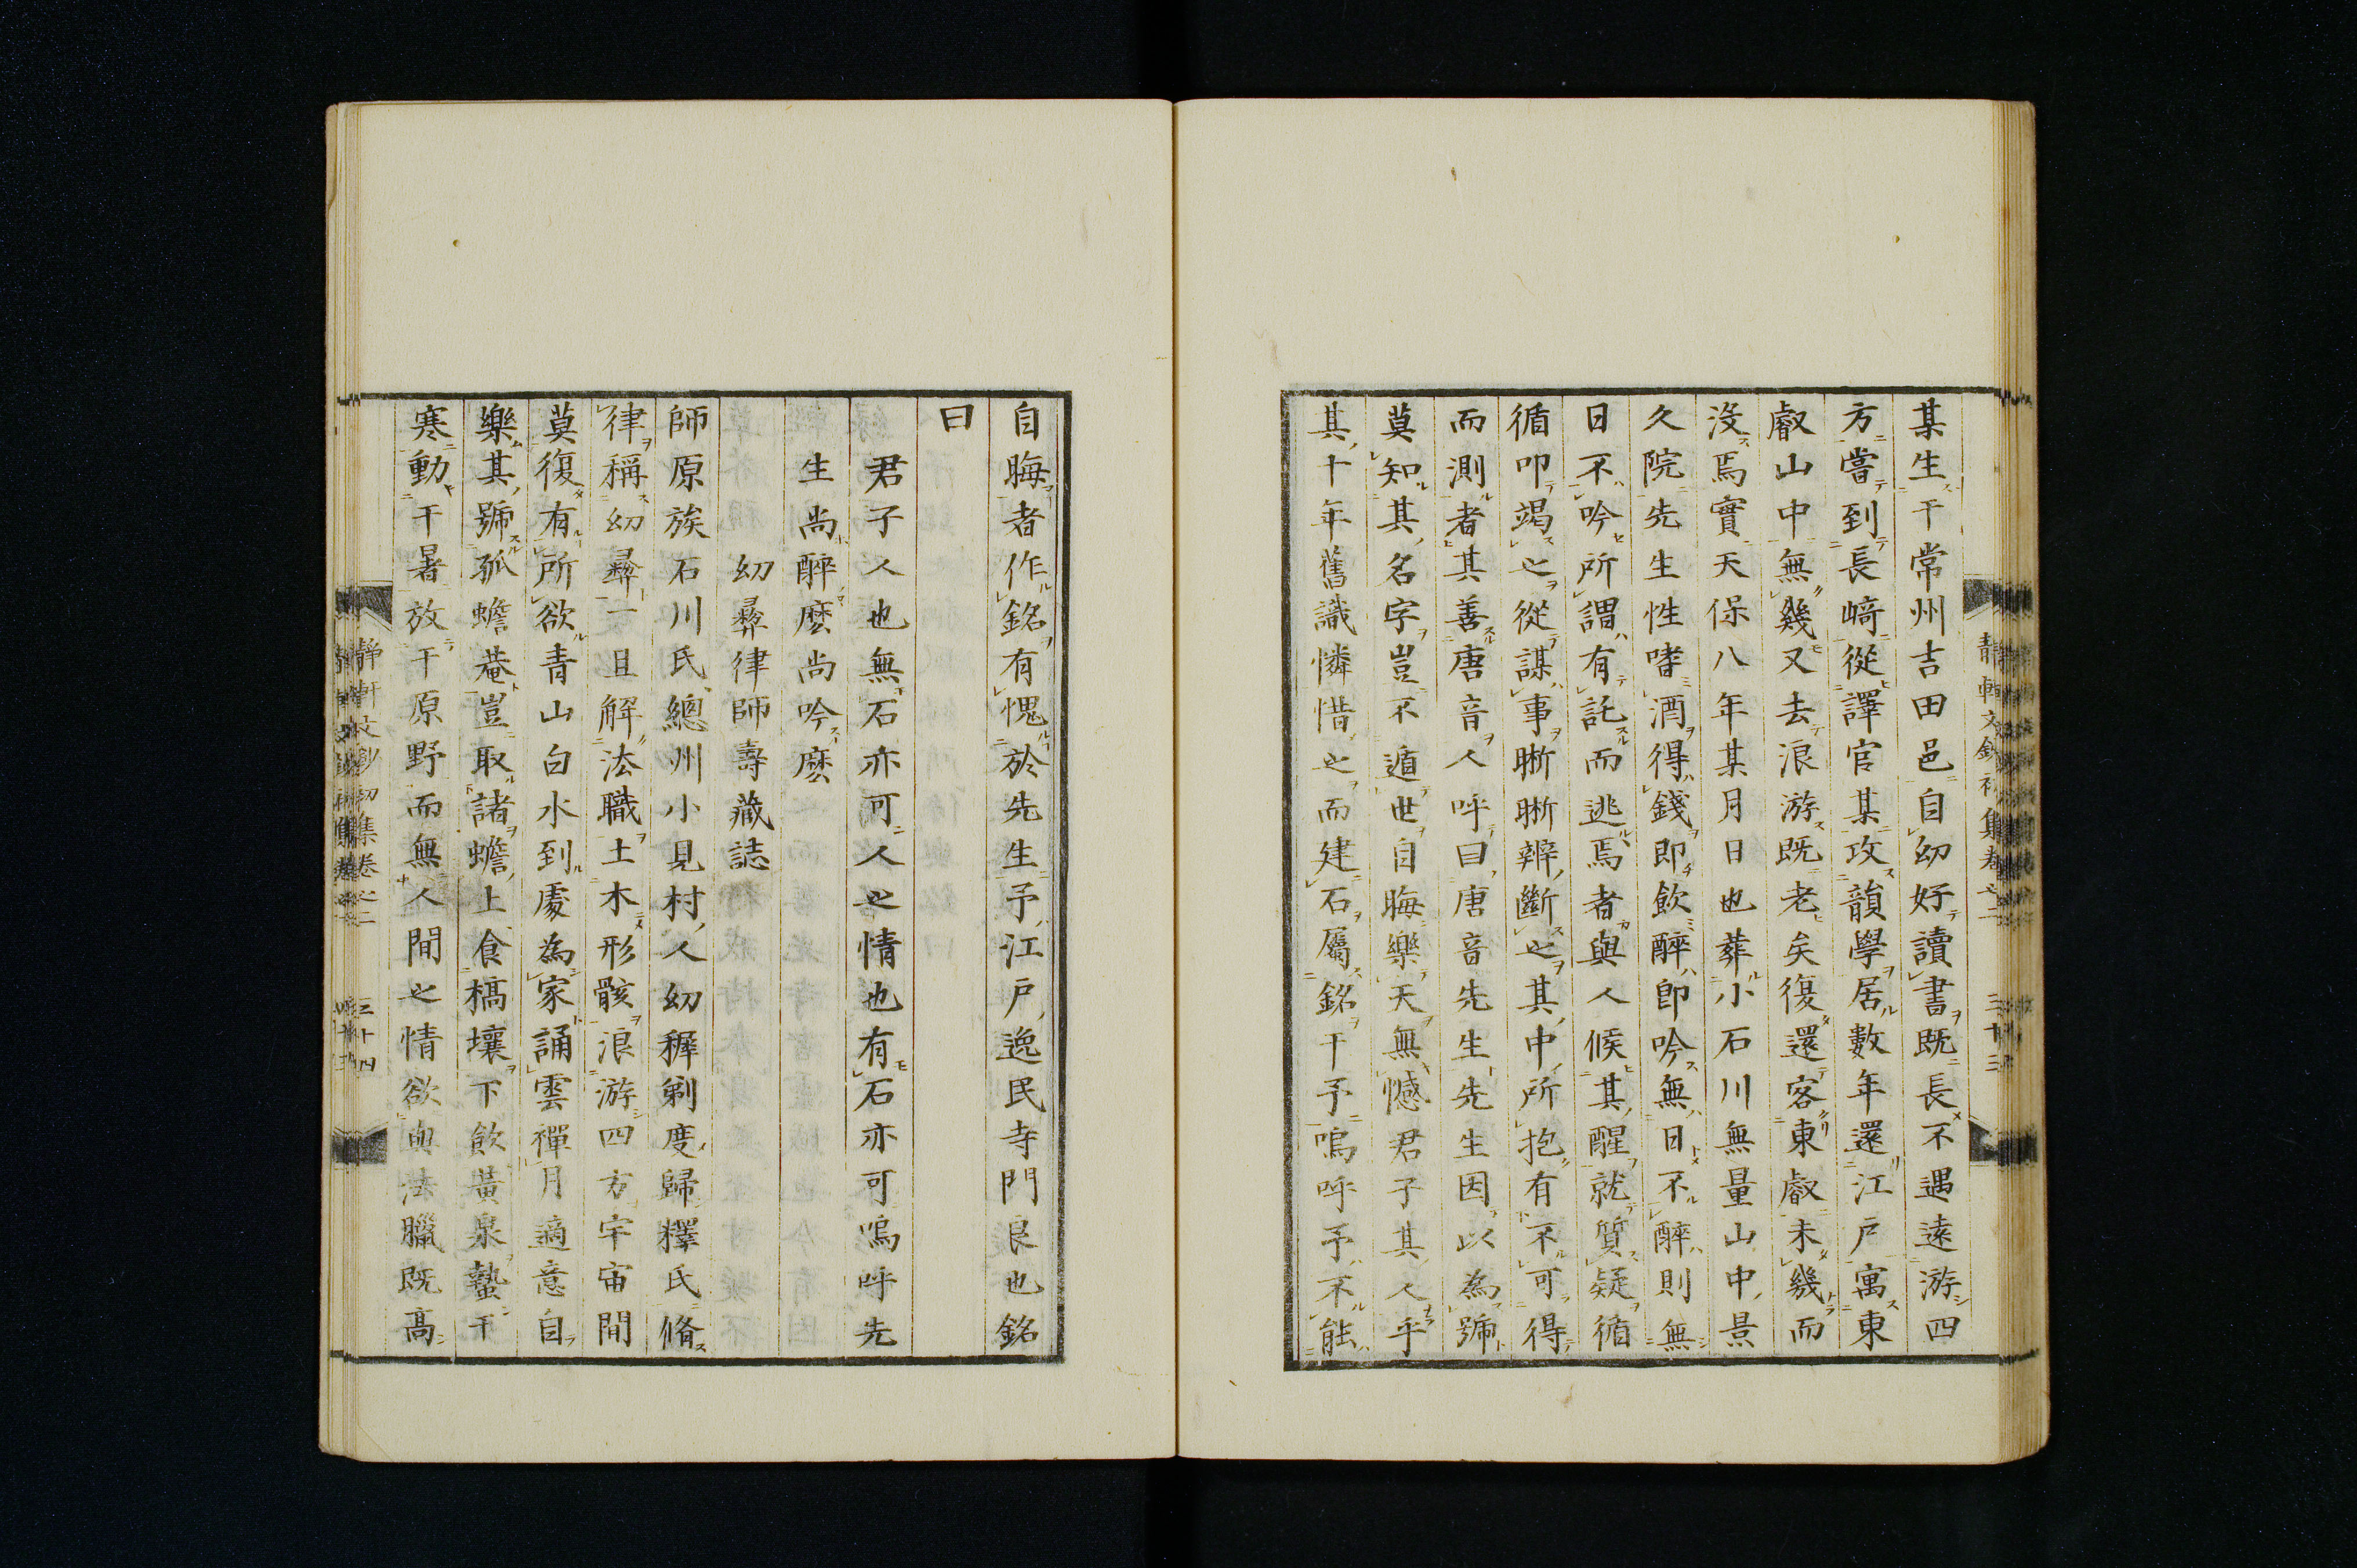 某生于常州吉田邑自幼好讀書既長不遇遠游四
方嘗到長﨑從譯官某攻韻學居數年還江戸寓東
叡山中無幾又去浪游既老矣復還客東叡未幾而
沒焉實天保八年某月日也葬小石川無量山中景
久院先生性嗜酒得錢即飲醉即吟無日不醉則無
日不吟所謂有託而逃焉者與人候其醒就質疑循
循叩竭之從謀事晰晰辨斷之其中所抱有不可得
而測者其善唐音人呼曰唐音先生先生因以為號
莫知其名字豈不遁世自晦樂天無憾君子其人乎
其十年舊識憐惜之而建石屬銘于予嗚呼予不能
自晦者作銘有愧於先生予江戸逸民寺門良也銘
曰
君子人也無石亦可人之情也有石亦可嗚呼先
生尚醉麼尚吟麼
幼彛律師壽藏誌
師原族石川氏總州小見村人幼穉剃度歸釋氏脩
律稱幼彛一旦解法職土木形骸浪游四方宇宙間
莫復有所欲青山白水到處為家誦雲禪月適意自
樂其號孤蟾菴豈取諸蟾上食槁壤下飲黃泉蟄于
寒動于暑放于原野而無人間之情欲與法臘既高
靜軒文鈔初集卷之二 三十三
靜軒文鈔初集卷之二 三十四